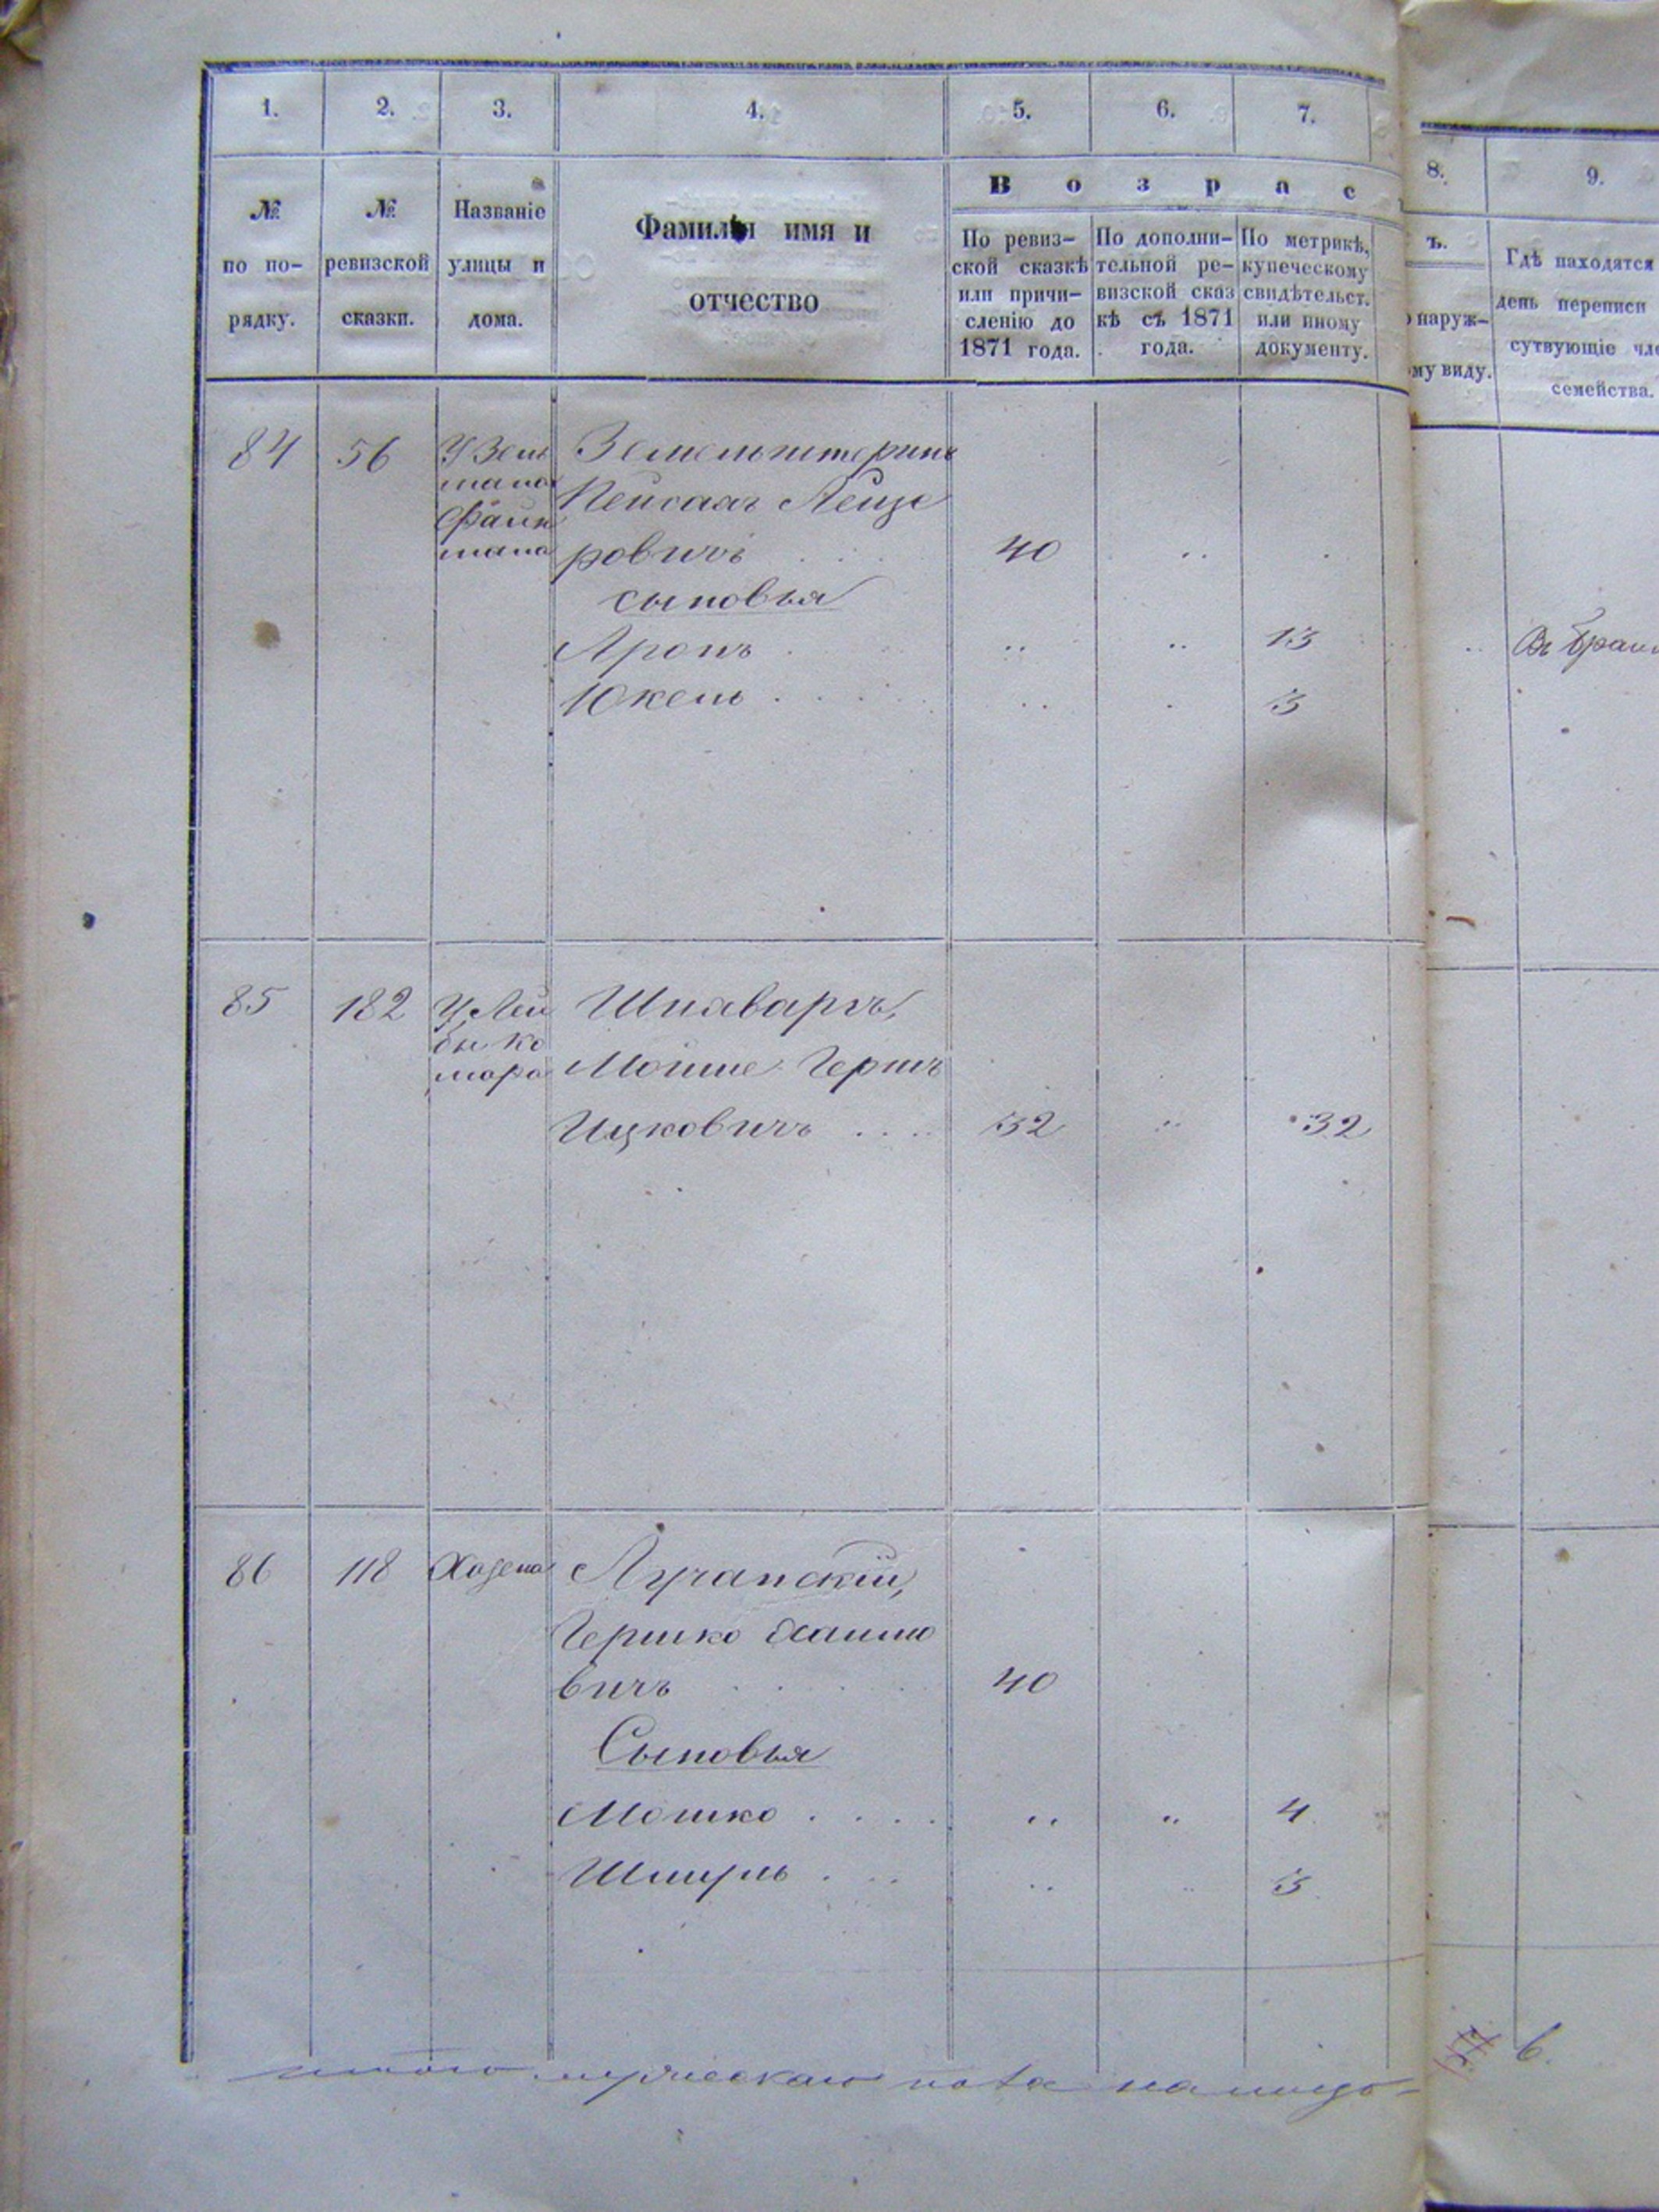 1. 2. 3. 4. 5. 6. 7.
8. 9.
В о з р а с
№ по по-рядку.
№ ревизской сказки.
Названіе улицы и дома.
Фамилія имя и отчество
По ревиз-
ской сказкѣ
или причи-
сленію до
1871 года.
По дополни-
тельной ре-
визской сказ
кѣ съ 1871
года.
По метрикѣ,
купеческому
свидѣтельст.
или иному
документу.
ъ.
наруж-
му виду.
Гдѣ находятся
день переписи
сутвующіе чле
семейства.
84 56 У Зель
мана
Файн
мана
Земельштернъ
Пейсахъ Лейзе
ровичъ 40
сыновья
Аронъ 13
Юкель 3
85 182 У Лей
бы Ко
мара
Шпаваръ,
Мойше Гершъ
Ицковичъ 32 32
86 118 Хазена
Лучанскій,
Гершко Хаимо
вичъ 40
Сыновья
Мошко 4
Шмуль 3
мужескаго пола
6.